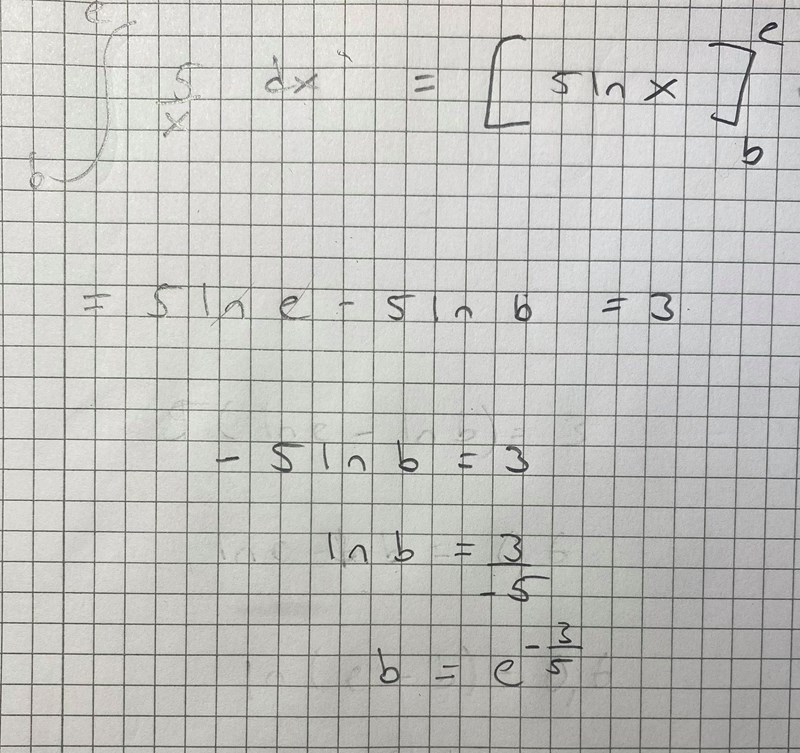 ∫_b^e 5/x dx = [5 ln x]_b^e
= 5 ln e - 5 ln b = 3
- 5 ln b = 3
ln b = 3/-5
b = e^(-3/5)